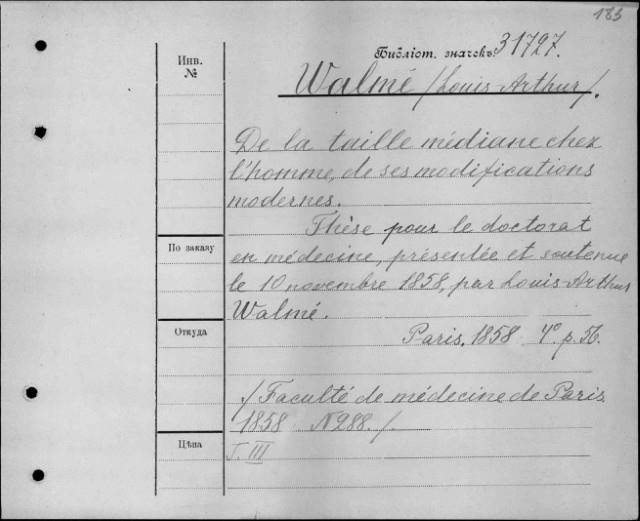 183
Инв.
№
Библіот. значекъ 31727.
Walmé /Louis-Arthur/.
De la taille médiane chez
l'homme, de ses modifications
modernes.
Thèse pour le doctorat
en médecine, présentée et soutenue
le 10 novembre 1858, par Louis-Arthur
Walmé.
Paris, 1858 4° p. 56.
/Faculté de médecine de Paris
1858 N 288./.
T. III
По заказу
Откуда
Цѣна